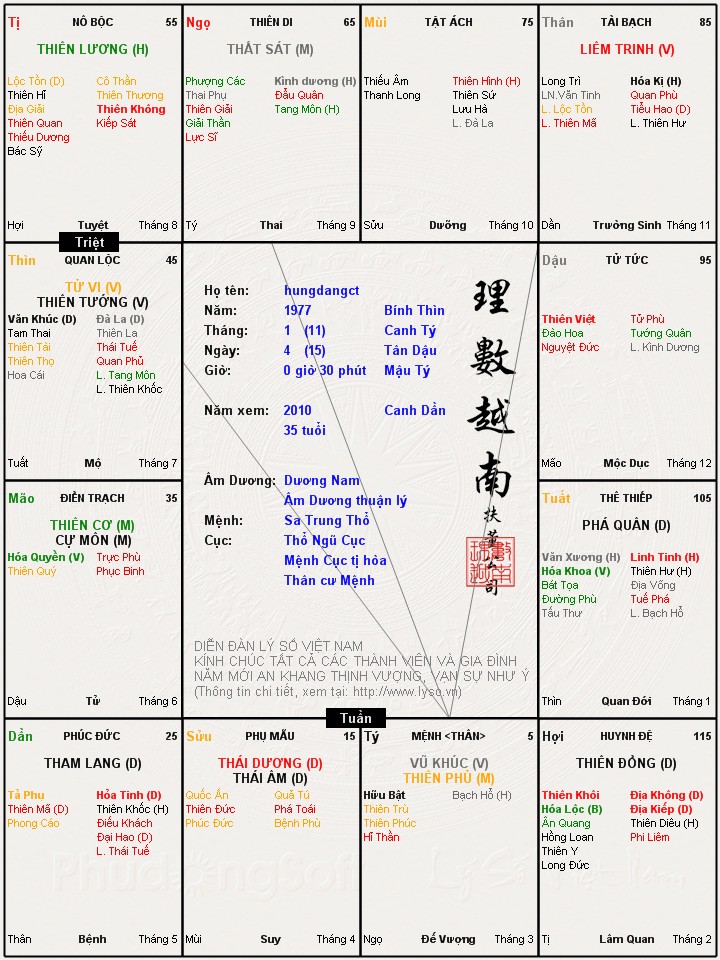 Tị NÔ BỘC 55
THIÊN LƯƠNG (H)
Lộc Tồn (D) Cô Thần
Thiên Hỉ Thiên Thương
Địa Giải Thiên Không
Thiên Quan Kiếp Sát
Thiếu Dương
Bác Sỹ
Hợi Tuyệt Tháng 8
Ngọ THIÊN DI 65
THẤT SÁT (M)
Phượng Các Kình dương (H)
Thai Phụ Đẩu Quân
Thiên Giải Tang Môn (H)
Giải Thần
Lực Sĩ
Tý Thai Tháng 9
Mùi TẬT ÁCH 75
Thiếu Âm Thiên Hình (H)
Thanh Long Thiên Sứ
Lưu Hà
L. Đà La
Sửu Dưỡng Tháng 10
Thân TÀI BẠCH 85
LIÊM TRINH (V)
Long Trì Hóa Kị (H)
LN.Văn Tinh Quan Phù
L. Lộc Tồn Tiểu Hao (D)
L. Thiên Mã L. Thiên Hư
Dần Trường Sinh Tháng 11
Triệt
Thìn QUAN LỘC 45
TỬ VI (V)
THIÊN TƯỚNG (V)
Văn Khúc (D) Đà La (D)
Tam Thai Thiên La
Thiên Tài Thái Tuế
Thiên Thọ Quan Phủ
Hoa Cái L. Tang Môn
L. Thiên Khốc
Tuất Mộ Tháng 7
Họ tên: hungdangct
Năm: 1977 Bính Thìn
Tháng: 1 (11) Canh Tý
Ngày: 4 (15) Tân Dậu
Giờ: 0 giờ 30 phút Mậu Tý
Năm xem: 2010 Canh Dần
35 tuổi
Âm Dương: Dương Nam
Âm Dương thuận lý
Mệnh: Sa Trung Thổ
Cục: Thổ Ngũ Cục
Mệnh Cục tị hòa
Thân cư Mệnh
理數越南
扶董公司
DIỄN ĐÀN LÝ SỐ VIỆT NAM
KÍNH CHÚC TẤT CẢ CÁC THÀNH VIÊN VÀ GIA ĐÌNH
NĂM MỚI AN KHANG THỊNH VƯỢNG, VẠN SỰ NHƯ Ý
(Thông tin chi tiết, xem tại: http://www.lyso.vn)
Dậu TỬ TỨC 95
Thiên Việt Tử Phù
Đào Hoa Tướng Quân
Nguyệt Đức L. Kình Dương
Mão Mộc Dục Tháng 12
Mão ĐIỀN TRẠCH 35
THIÊN CƠ (M)
CỰ MÔN (M)
Hóa Quyền (V) Trực Phù
Thiên Quý Phục Binh
Dậu Tử Tháng 6
Tuất THÊ THIẾP 105
PHÁ QUÂN (D)
Văn Xương (H) Linh Tinh (H)
Hóa Khoa (V) Thiên Hư (H)
Bát Tọa Địa Võng
Đường Phù Tuế Phá
Tấu Thư L. Bạch Hổ
Thìn Quan Đới Tháng 1
Tuần
Dần PHÚC ĐỨC 25
THAM LANG (D)
Tả Phụ Hỏa Tinh (D)
Thiên Mã (D) Thiên Khốc (H)
Phong Cáo Điếu Khách
Đại Hao (D)
L. Thái Tuế
Thân Bệnh Tháng 5
Sửu PHỤ MẪU 15
THÁI DƯƠNG (D)
THÁI ÂM (D)
Quốc Ấn Quả Tú
Thiên Đức Phá Toái
Phúc Đức Bệnh Phù
Mùi Suy Tháng 4
Tý MỆNH <THÂN> 5
VŨ KHÚC (V)
THIÊN PHỦ (M)
Hữu Bật Bạch Hổ (H)
Thiên Trù
Thiên Phúc
Hỉ Thần
Ngọ Đế Vượng Tháng 3
Hợi HUYNH ĐỆ 115
THIÊN ĐỒNG (D)
Thiên Khôi Địa Không (D)
Hóa Lộc (B) Địa Kiếp (D)
Ân Quang Thiên Diêu (H)
Hồng Loan Phi Liêm
Thiên Y
Long Đức
Tị Lâm Quan Tháng 2